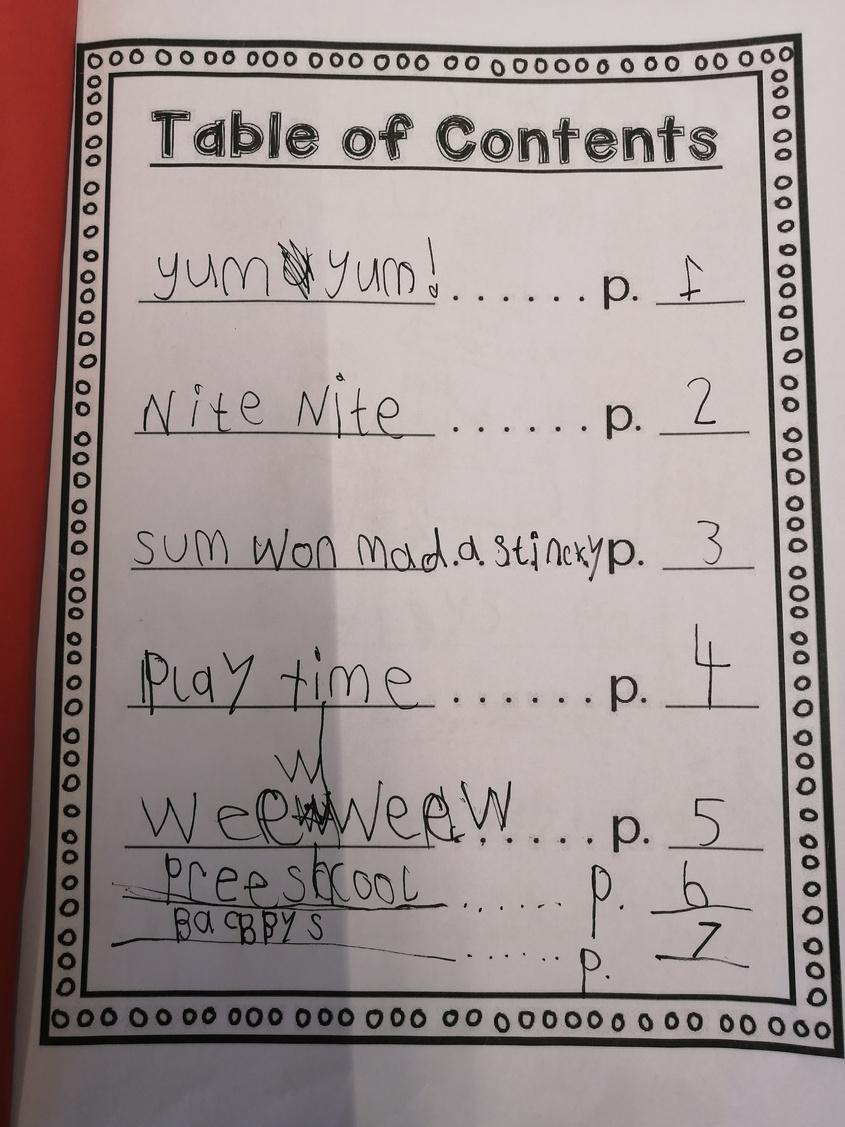 Table of Contents
yum yum! ...... p. 1
Nite Nite ...... p. 2
sum won mad.a. stinckyp. 3
Play time ...... p. 4
W
WeewWeeW ..... p. 5
Preeshcool ...... p. 6
...... p. 7